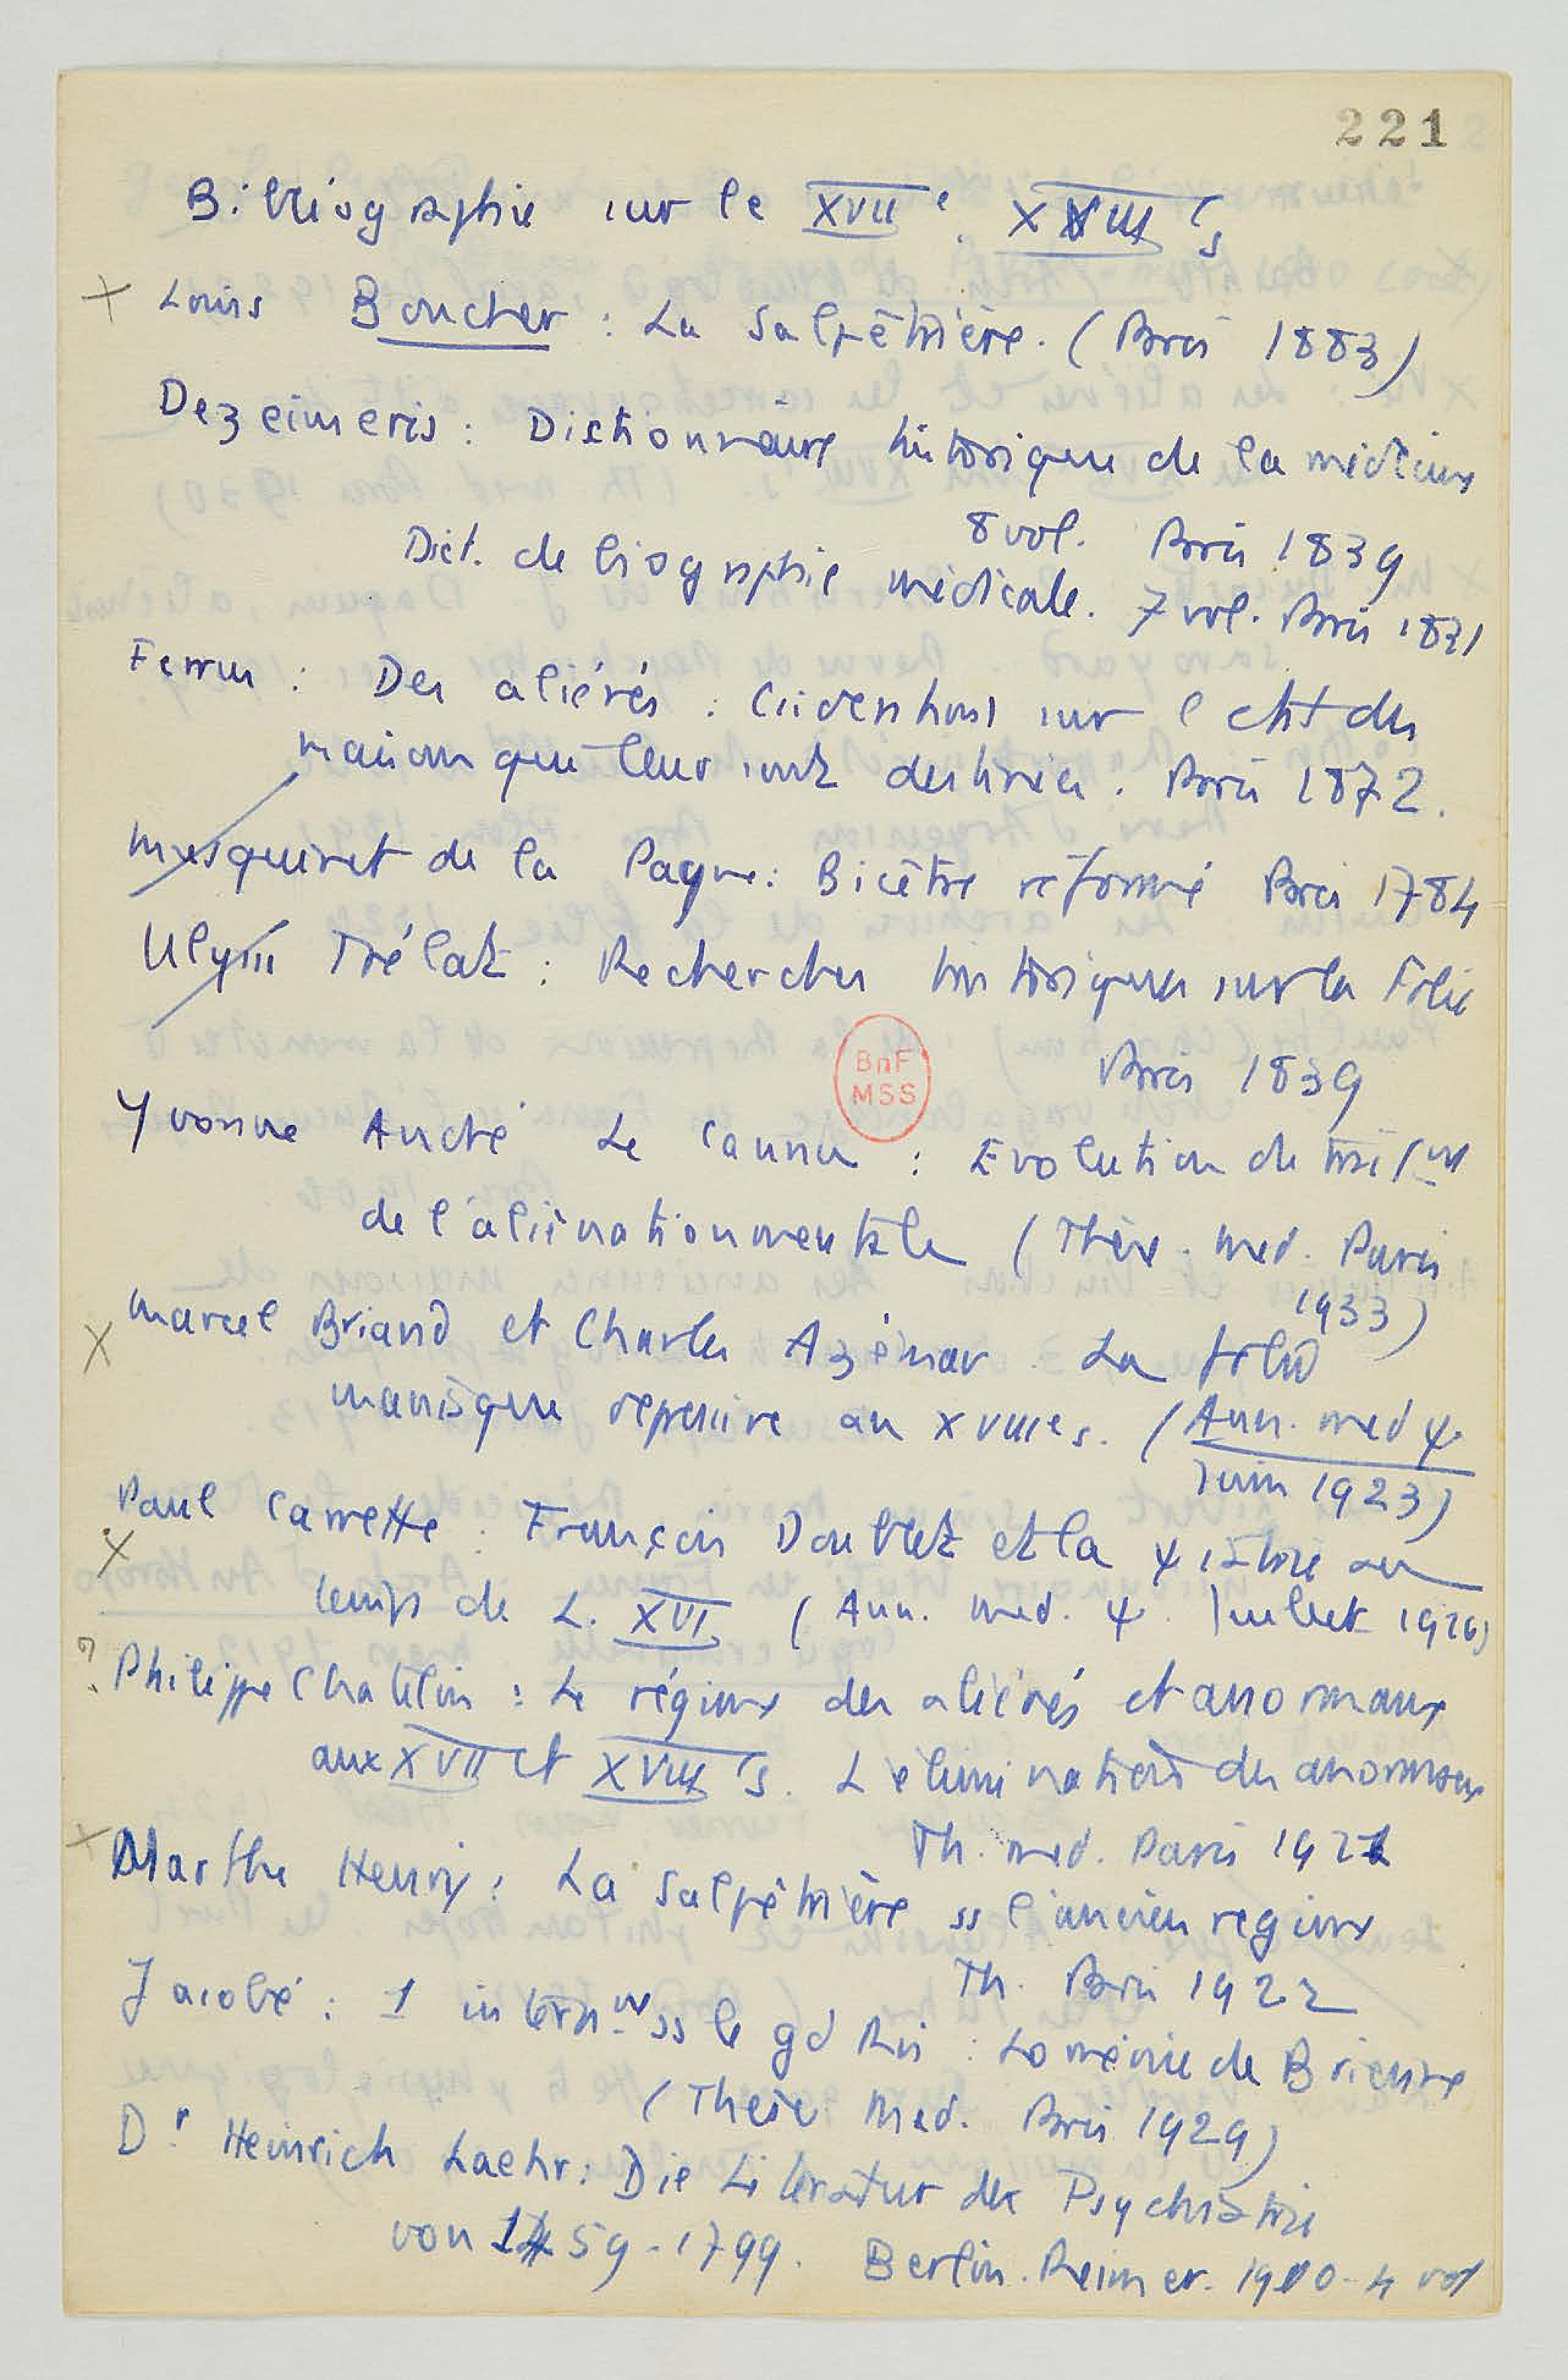 221
Bibliographie sur le XVIIe. XVIIIe s
x Louis Boucher : La Salpêtrière. (Paris 1883)
Dezeimeris : Dictionnaire historique de la médecine
8 vol. Paris 1839
Dict. de biographie médicale. 7 vol. Paris 1821
Ferrus : Des aliénés : Considerations sur l' des
maisons qui leur sont destinées. Paris 1872.
Musquinet de la Pagne : Bicêtre réformé Paris 1784
Ulysse Trélat : Recherches historiques sur la Folie
Paris 1839
BnF
MSS
Yvonne André Le Cannu : Evolution du
de l'aliénation mentale (Thèse. med. Paris
1933)
x Marcel Briand et Charles Azémar. La folie
maniaque depressive au XVIIIe s. (Ann. med ψ
Juin 1923)
x Paul Carrette : François Doublet et la ψiatrie au
temps de L. XVI (Ann. med. ψ. Juillet 1926)
? Philippe Chatelin : Le régime des aliénés et anormaux
aux XVII et XVIIIe s. L'elimination des anormaux
Th. med. Paris 1921
x Marthe Henry : La Salpêtrière ss l'ancien regime
Th. Paris 1922
Jacobé : 1 internt ss le gd Roi : Loménie de Brienne
(Thèse Med. Paris 1929)
Dr Heinrich Laehr : Die Literatur der Psychiatrie
von 1459-1799. Berlin. Reimer. 1900 - 4 vol